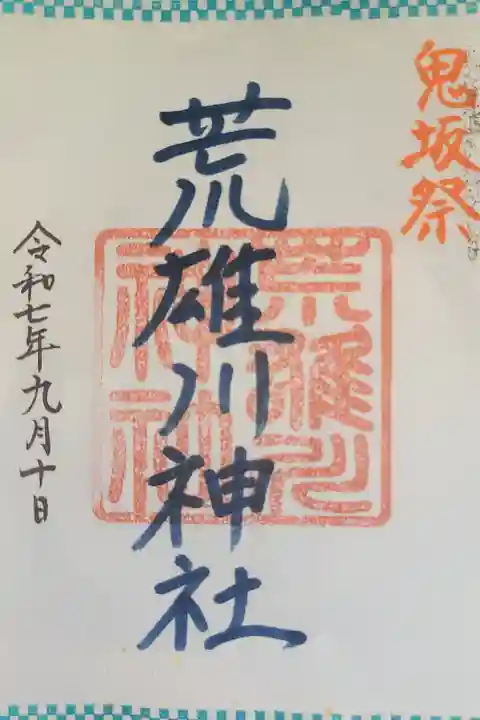 鬼坂祭
荒雄川神社
荒雄川
神社
令和七年九月十日